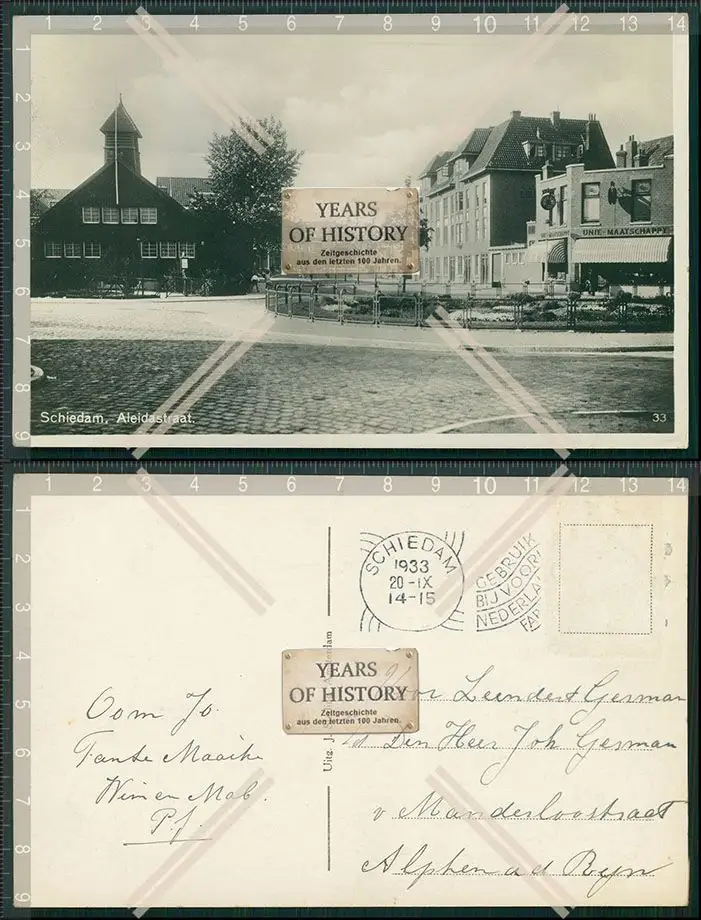 1 2 3 4 5 6 7 8 9 10 11 12 13 14
2
3
4
5
6
7
8
9
UNIE-MAATSCHAPPY
YEARS
OF HISTORY
Zeitgeschichte
aus den letzten 100 Jahren.
Schiedam, Aleidastraat.
33
1 2 3 4 5 6 7 8 9 10 11 12 13 14
2
3
4
5
6
7
8
9
SCHIEDAM
1933
20-IX
14-15
GEBRUIK
BIJ VOOR
NEDERLA
FAB
Uitg. J.
YEARS
OF HISTORY
Zeitgeschichte
aus den letzten 100 Jahren.
Oom Jo.
Tante Maaike
Wim en
P.f.
Voor Leendert German
Den Heer Joh German
v Manderloostraat
Alphen a d Ryn